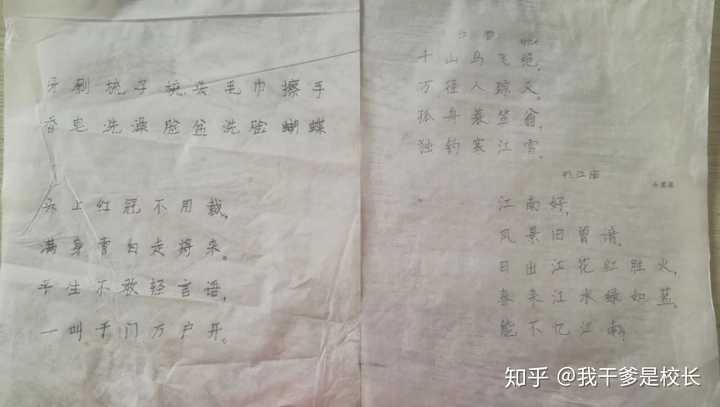 牙刷梳子梳头毛巾擦手
香皂洗澡脸盆洗脸蝴蝶
头上红冠不用裁，
满身雪白走将来。
平生不敢轻言语，
一叫千门万户开。
江雪
千山鸟飞绝，
万径人踪灭。
孤舟蓑笠翁，
独钓寒江雪。
忆江南
江南好，
风景旧曾谙。
日出江花红胜火，
春来江水绿如蓝。
能不忆江南。
知乎 @我干爹是校长